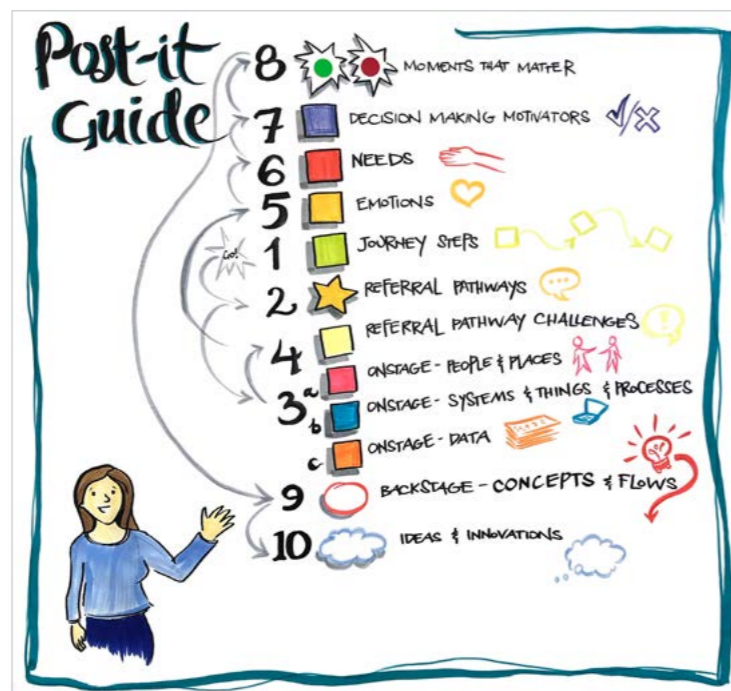 Post-it
Guide
8 MOMENTS THAT MATTER
7 DECISION MAKING MOTIVATORS
6 NEEDS
5 EMOTIONS
Go!
1 JOURNEY STEPS
2 REFERRAL PATHWAYS
4 REFERRAL PATHWAY CHALLENGES
3 a ONSTAGE - PEOPLE & PLACES
b ONSTAGE - SYSTEMS & THINGS & PROCESSES
c ONSTAGE - DATA
9 BACKSTAGE - CONCEPTS & FLOWS
10 IDEAS & INNOVATIONS